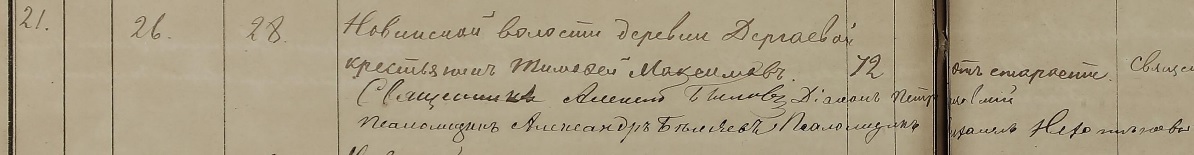 21. 26. 28. Новинской волости деревни Дергаевой
крестьянинъ Тимофей Максимовъ. 72 отъ старости. Свящ
Священникъ Алексей Диаконъ Петр
Псаломщикъ Александръ Беляевъ Псаломщикъ